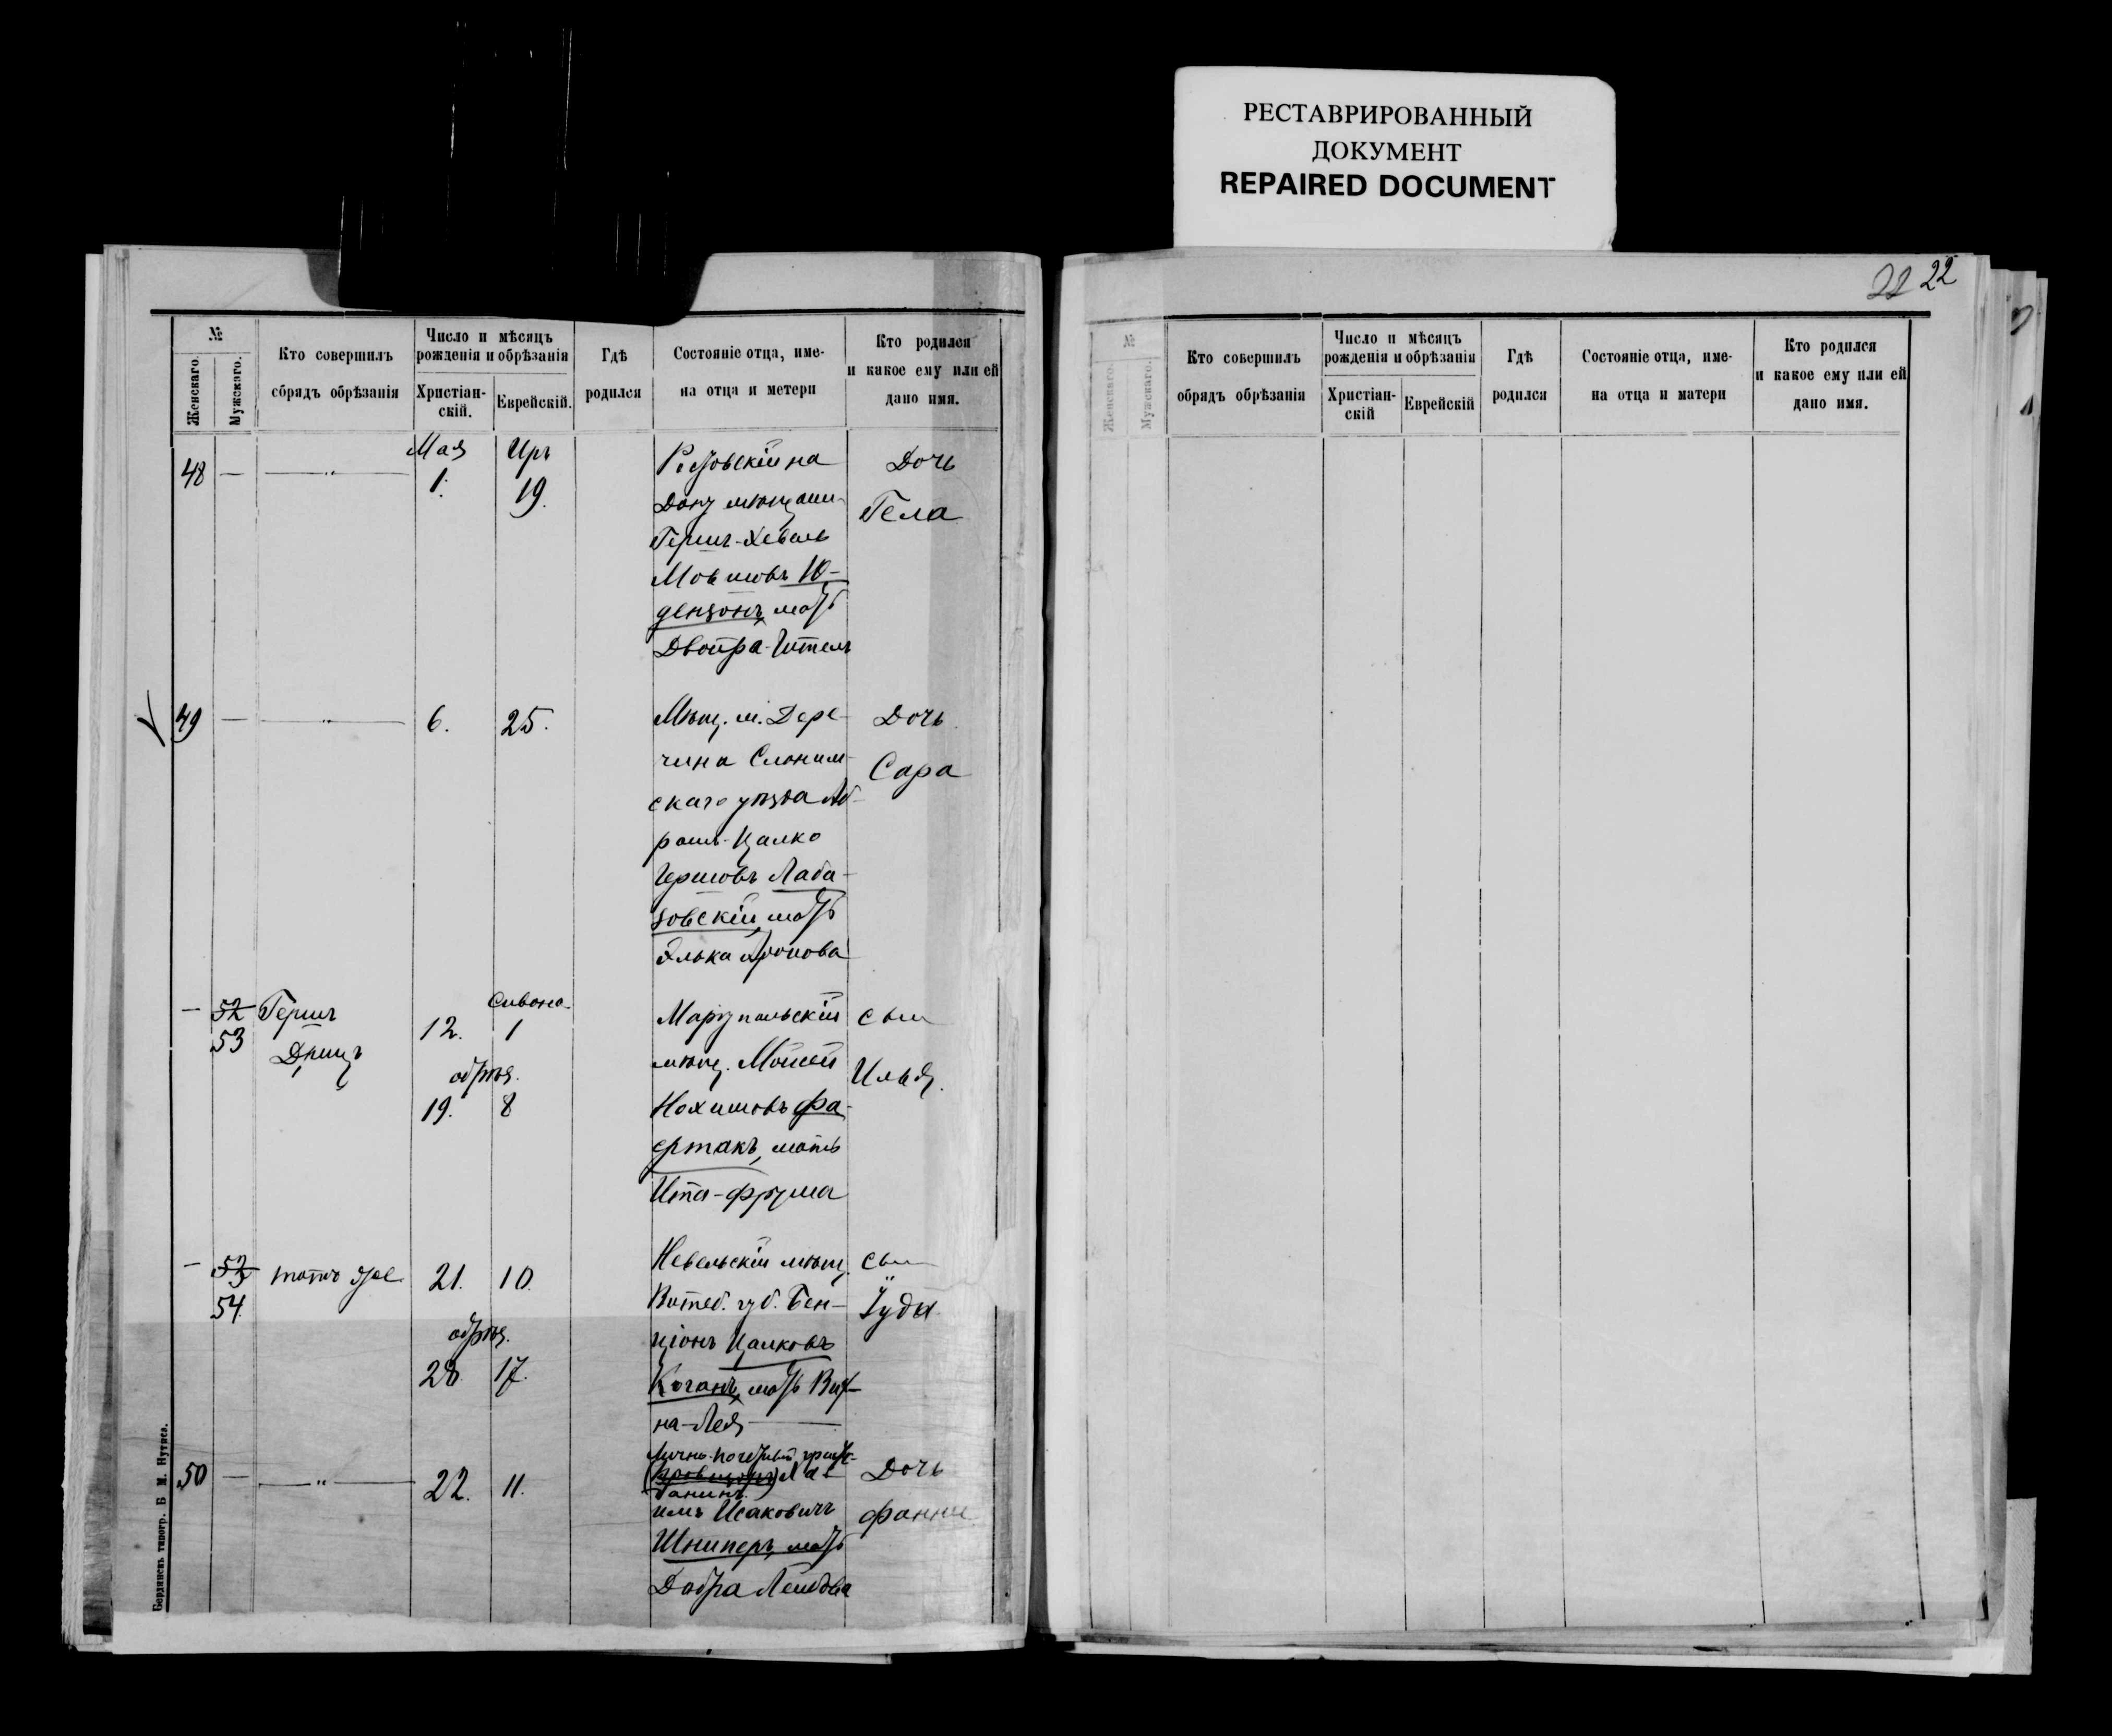 РЕСТАВРИРОВАННЫЙ
ДОКУМЕНТ
REPAIRED DOCUMENT
22 22
№
Женскаго.
Мужскаго.
Кто совершилъ
обрядъ обрѣзанія
Число и мѣсяцъ
рожденія и обрѣзанія
Христіан-
скій.
Еврейскій.
Гдѣ
родился
Состояніе отца, име-
на отца и метери
Кто родился
и какое ему или ей
дано имя.
Мая Иръ
48 — —"— 1. 19.
Ростовскій на
Дону мѣщани
Гершъ-Хевель
Мовшовъ Ю-
дензонъ, мать
Двойра-Ител
Дочь
Гела
49 — —"— 6. 25.
Мѣщ. м. Дере-
чина Слоним-
скаго уѣзда Аб-
рамъ-Цалко
Гершовъ Лаба-
зовскій, мать
Элька Аронова
Дочь
Сара
— 52 53
Гершъ
12. Сивона 1
обрѣз.
19. 8
Маріупольскій
мѣщ. Мойсей
Нохимовъ Фа-
ертакъ, мать
Ита-Фрума
сын
Илья.
— 53 54
тотъ же
21. 10
обрѣз.
28. 17.
Невельскій мѣщ.
Витеб. губ. Бен-
ціонъ Цалковъ
Коганъ, мать Вих-
на-Лея
сын
Іуда
50 — —"— 22. 11.
Лично-почетный граж-
данинъ
имъ Исаковичъ
Шниперъ, мать
Добра Лейбова
Дочь
Фанни
Бердянскъ типогр. Б. М.
№
Женскаго.
Мужскаго.
Кто совершилъ
обрядъ обрѣзанія
Число и мѣсяцъ
рожденія и обрѣзанія
Христіан-
скій
Еврейскій
Гдѣ
родился
Состояніе отца, име-
на отца и матери
Кто родился
и какое ему или ей
дано имя.